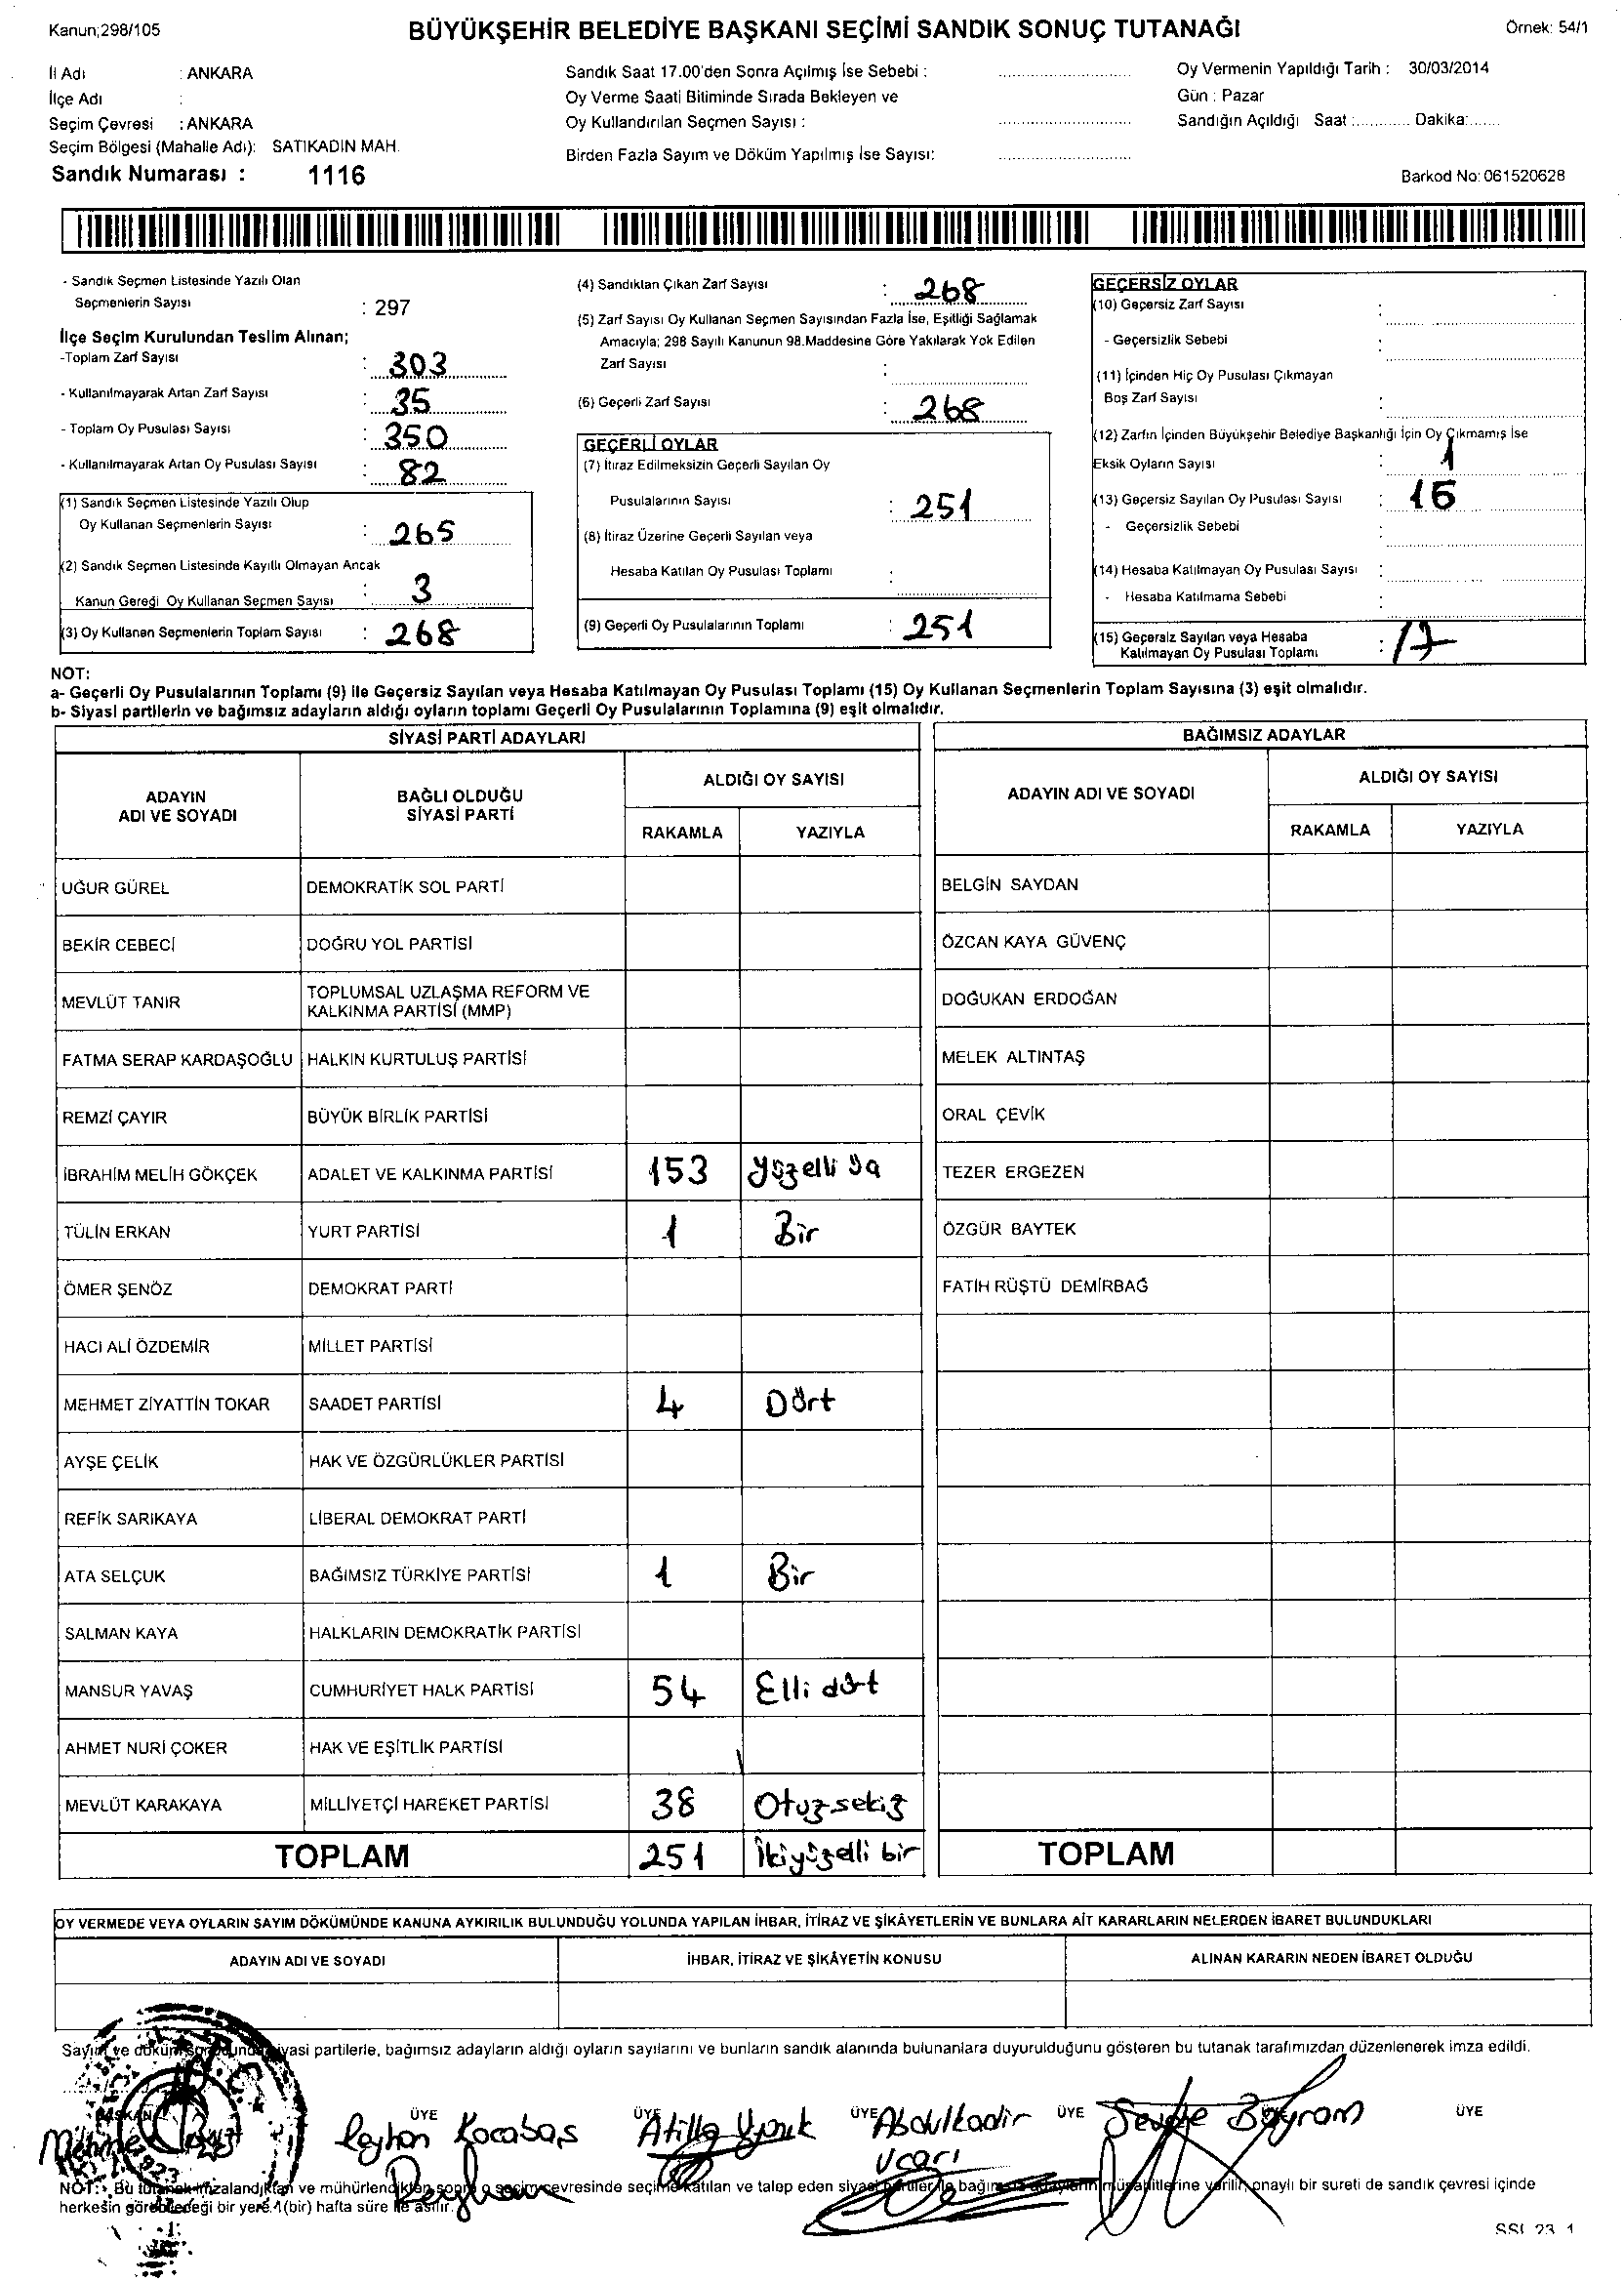 Kanun;298/105
BÜYÜKŞEHİR BELEDİYE BAŞKANI SEÇİMİ SANDIK SONUÇ TUTANAĞI
Örnek: 54/1
İl Adı : ANKARA
İlçe Adı :
Seçim Çevresi : ANKARA
Seçim Bölgesi (Mahalle Adı): SATIKADIN MAH.
Sandık Numarası : 1116
Sandık Saat 17.00'den Sonra Açılmış İse Sebebi :
Oy Verme Saati Bitiminde Sırada Bekleyen ve
Oy Kullandırılan Seçmen Sayısı :
Birden Fazla Sayım ve Döküm Yapılmış İse Sayısı:
Oy Vermenin Yapıldığı Tarih : 30/03/2014
Gün : Pazar
Sandığın Açıldığı Saat :............ Dakika:......
Barkod No: 061520628
- Sandık Seçmen Listesinde Yazılı Olan
Seçmenlerin Sayısı : 297
İlçe Seçim Kurulundan Teslim Alınan;
-Toplam Zarf Sayısı : 303
- Kullanılmayarak Artan Zarf Sayısı : 35
- Toplam Oy Pusulası Sayısı : 350
- Kullanılmayarak Artan Oy Pusulası Sayısı : 82
(1) Sandık Seçmen Listesinde Yazılı Olup
Oy Kullanan Seçmenlerin Sayısı : 265
(2) Sandık Seçmen Listesinde Kayıtlı Olmayan Ancak
Kanun Gereği Oy Kullanan Seçmen Sayısı : 3
(3) Oy Kullanan Seçmenlerin Toplam Sayısı : 268
(4) Sandıktan Çıkan Zarf Sayısı : 268
(5) Zarf Sayısı Oy Kullanan Seçmen Sayısından Fazla İse, Eşitliği Sağlamak
Amacıyla; 298 Sayılı Kanunun 98.Maddesine Göre Yakılarak Yok Edilen
Zarf Sayısı :
(6) Geçerli Zarf Sayısı : 268
GEÇERLİ OYLAR
(7) İtiraz Edilmeksizin Geçerli Sayılan Oy
Pusulalarının Sayısı : 251
(8) İtiraz Üzerine Geçerli Sayılan veya
Hesaba Katılan Oy Pusulası Toplamı :
(9) Geçerli Oy Pusulalarının Toplamı : 251
GEÇERSİZ OYLAR
(10) Geçersiz Zarf Sayısı :
- Geçersizlik Sebebi :
(11) İçinden Hiç Oy Pusulası Çıkmayan
Boş Zarf Sayısı :
(12) Zarfın İçinden Büyükşehir Belediye Başkanlığı İçin Oy Çıkmamış İse
Eksik Oyların Sayısı : 1
(13) Geçersiz Sayılan Oy Pusulası Sayısı : 16
- Geçersizlik Sebebi :
(14) Hesaba Katılmayan Oy Pusulası Sayısı :
- Hesaba Katılmama Sebebi :
(15) Geçersiz Sayılan veya Hesaba
Katılmayan Oy Pusulası Toplamı : 17
NOT:
a- Geçerli Oy Pusulalarının Toplamı (9) ile Geçersiz Sayılan veya Hesaba Katılmayan Oy Pusulası Toplamı (15) Oy Kullanan Seçmenlerin Toplam Sayısına (3) eşit olmalıdır.
b- Siyasi partilerin ve bağımsız adayların aldığı oyların toplamı Geçerli Oy Pusulalarının Toplamına (9) eşit olmalıdır.
SİYASİ PARTİ ADAYLARI
ADAYIN ADI VE SOYADI
BAĞLI OLDUĞU SİYASİ PARTİ
ALDIĞI OY SAYISI
RAKAMLA YAZIYLA
UĞUR GÜREL DEMOKRATİK SOL PARTİ
BEKİR CEBECİ DOĞRU YOL PARTİSİ
MEVLÜT TANIR TOPLUMSAL UZLAŞMA REFORM VE
KALKINMA PARTİSİ (MMP)
FATMA SERAP KARDAŞOĞLU HALKIN KURTULUŞ PARTİSİ
REMZİ ÇAYIR BÜYÜK BİRLİK PARTİSİ
İBRAHİM MELİH GÖKÇEK ADALET VE KALKINMA PARTİSİ 153
TÜLİN ERKAN YURT PARTİSİ 1 Bir
ÖMER ŞENÖZ DEMOKRAT PARTİ
HACI ALİ ÖZDEMİR MİLLET PARTİSİ
MEHMET ZİYATTİN TOKAR SAADET PARTİSİ 4 Dört
AYŞE ÇELİK HAK VE ÖZGÜRLÜKLER PARTİSİ
REFİK SARIKAYA LİBERAL DEMOKRAT PARTİ
ATA SELÇUK BAĞIMSIZ TÜRKİYE PARTİSİ 1 Bir
SALMAN KAYA HALKLARIN DEMOKRATİK PARTİSİ
MANSUR YAVAŞ CUMHURİYET HALK PARTİSİ 54 Elli dört
AHMET NURİ ÇOKER HAK VE EŞİTLİK PARTİSİ
MEVLÜT KARAKAYA MİLLİYETÇİ HAREKET PARTİSİ 38 Otuzsekiz
TOPLAM 251 İkiyüzelli bir
BAĞIMSIZ ADAYLAR
ADAYIN ADI VE SOYADI
ALDIĞI OY SAYISI
RAKAMLA YAZIYLA
BELGİN SAYDAN
ÖZCAN KAYA GÜVENÇ
DOĞUKAN ERDOĞAN
MELEK ALTINTAŞ
ORAL ÇEVİK
TEZER ERGEZEN
ÖZGÜR BAYTEK
FATİH RÜŞTÜ DEMİRBAĞ
TOPLAM
OY VERMEDE VEYA OYLARIN SAYIM DÖKÜMÜNDE KANUNA AYKIRILIK BULUNDUĞU YOLUNDA YAPILAN İHBAR, İTİRAZ VE ŞİKÂYETLERİN VE BUNLARA AİT KARARLARIN NELERDEN İBARET BULUNDUKLARI
ADAYIN ADI VE SOYADI
İHBAR, İTİRAZ VE ŞİKÂYETİN KONUSU
ALINAN KARARIN NEDEN İBARET OLDUĞU
Sayım ve döküm sonucunda siyasi partilerle, bağımsız adayların aldığı oyların sayılarını ve bunların sandık alanında bulunanlara duyurulduğunu gösteren bu tutanak tarafımızdan düzenlenerek imza edildi.
BAŞKAN ÜYE ÜYE ÜYE ÜYE ÜYE
Reyhan Kocabaş Atilla Abdulkadir Bayram
Uçarı
Reyhan
NOT: Bu tutanak imzalandıktan ve mühürlendikten sonra o seçim çevresinde seçime katılan ve talep eden siyasi partiler ile bağımsız adayların müşahitlerine verilir, onaylı bir sureti de sandık çevresi içinde
herkesin görebileceği bir yere 1(bir) hafta süre ile asılır.